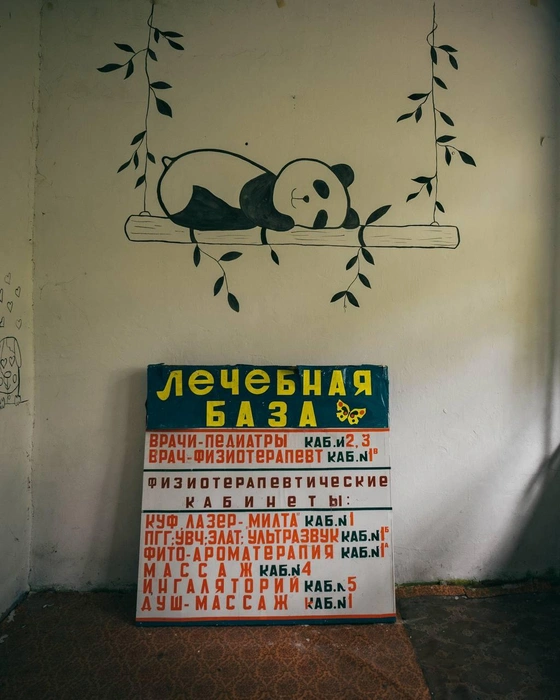 ЛеЧеБНАЯ
БАЗА
ВРАЧИ-ПЕДИАТРЫ КАБ.N2,3
ВРАЧ-ФИЗИОТЕРАПЕВТ КАБ.N1В
ФИЗИОТЕРАПЕВТИЧЕСКИЕ
КАБИНЕТЫ:
КУФ, ЛАЗЕР-"МИЛТА" КАБ.N1
ПГГ;УВЧ;ЭЛАТ; УЛЬТРАЗВУК КАБ.N1Б
ФИТО-АРОМАТЕРАПИЯ КАБ.N1А
МАССАЖ КАБ.N4
ИНГАЛЯТОРИЙ КАБ.N5
ДУШ-МАССАЖ КАБ.N1